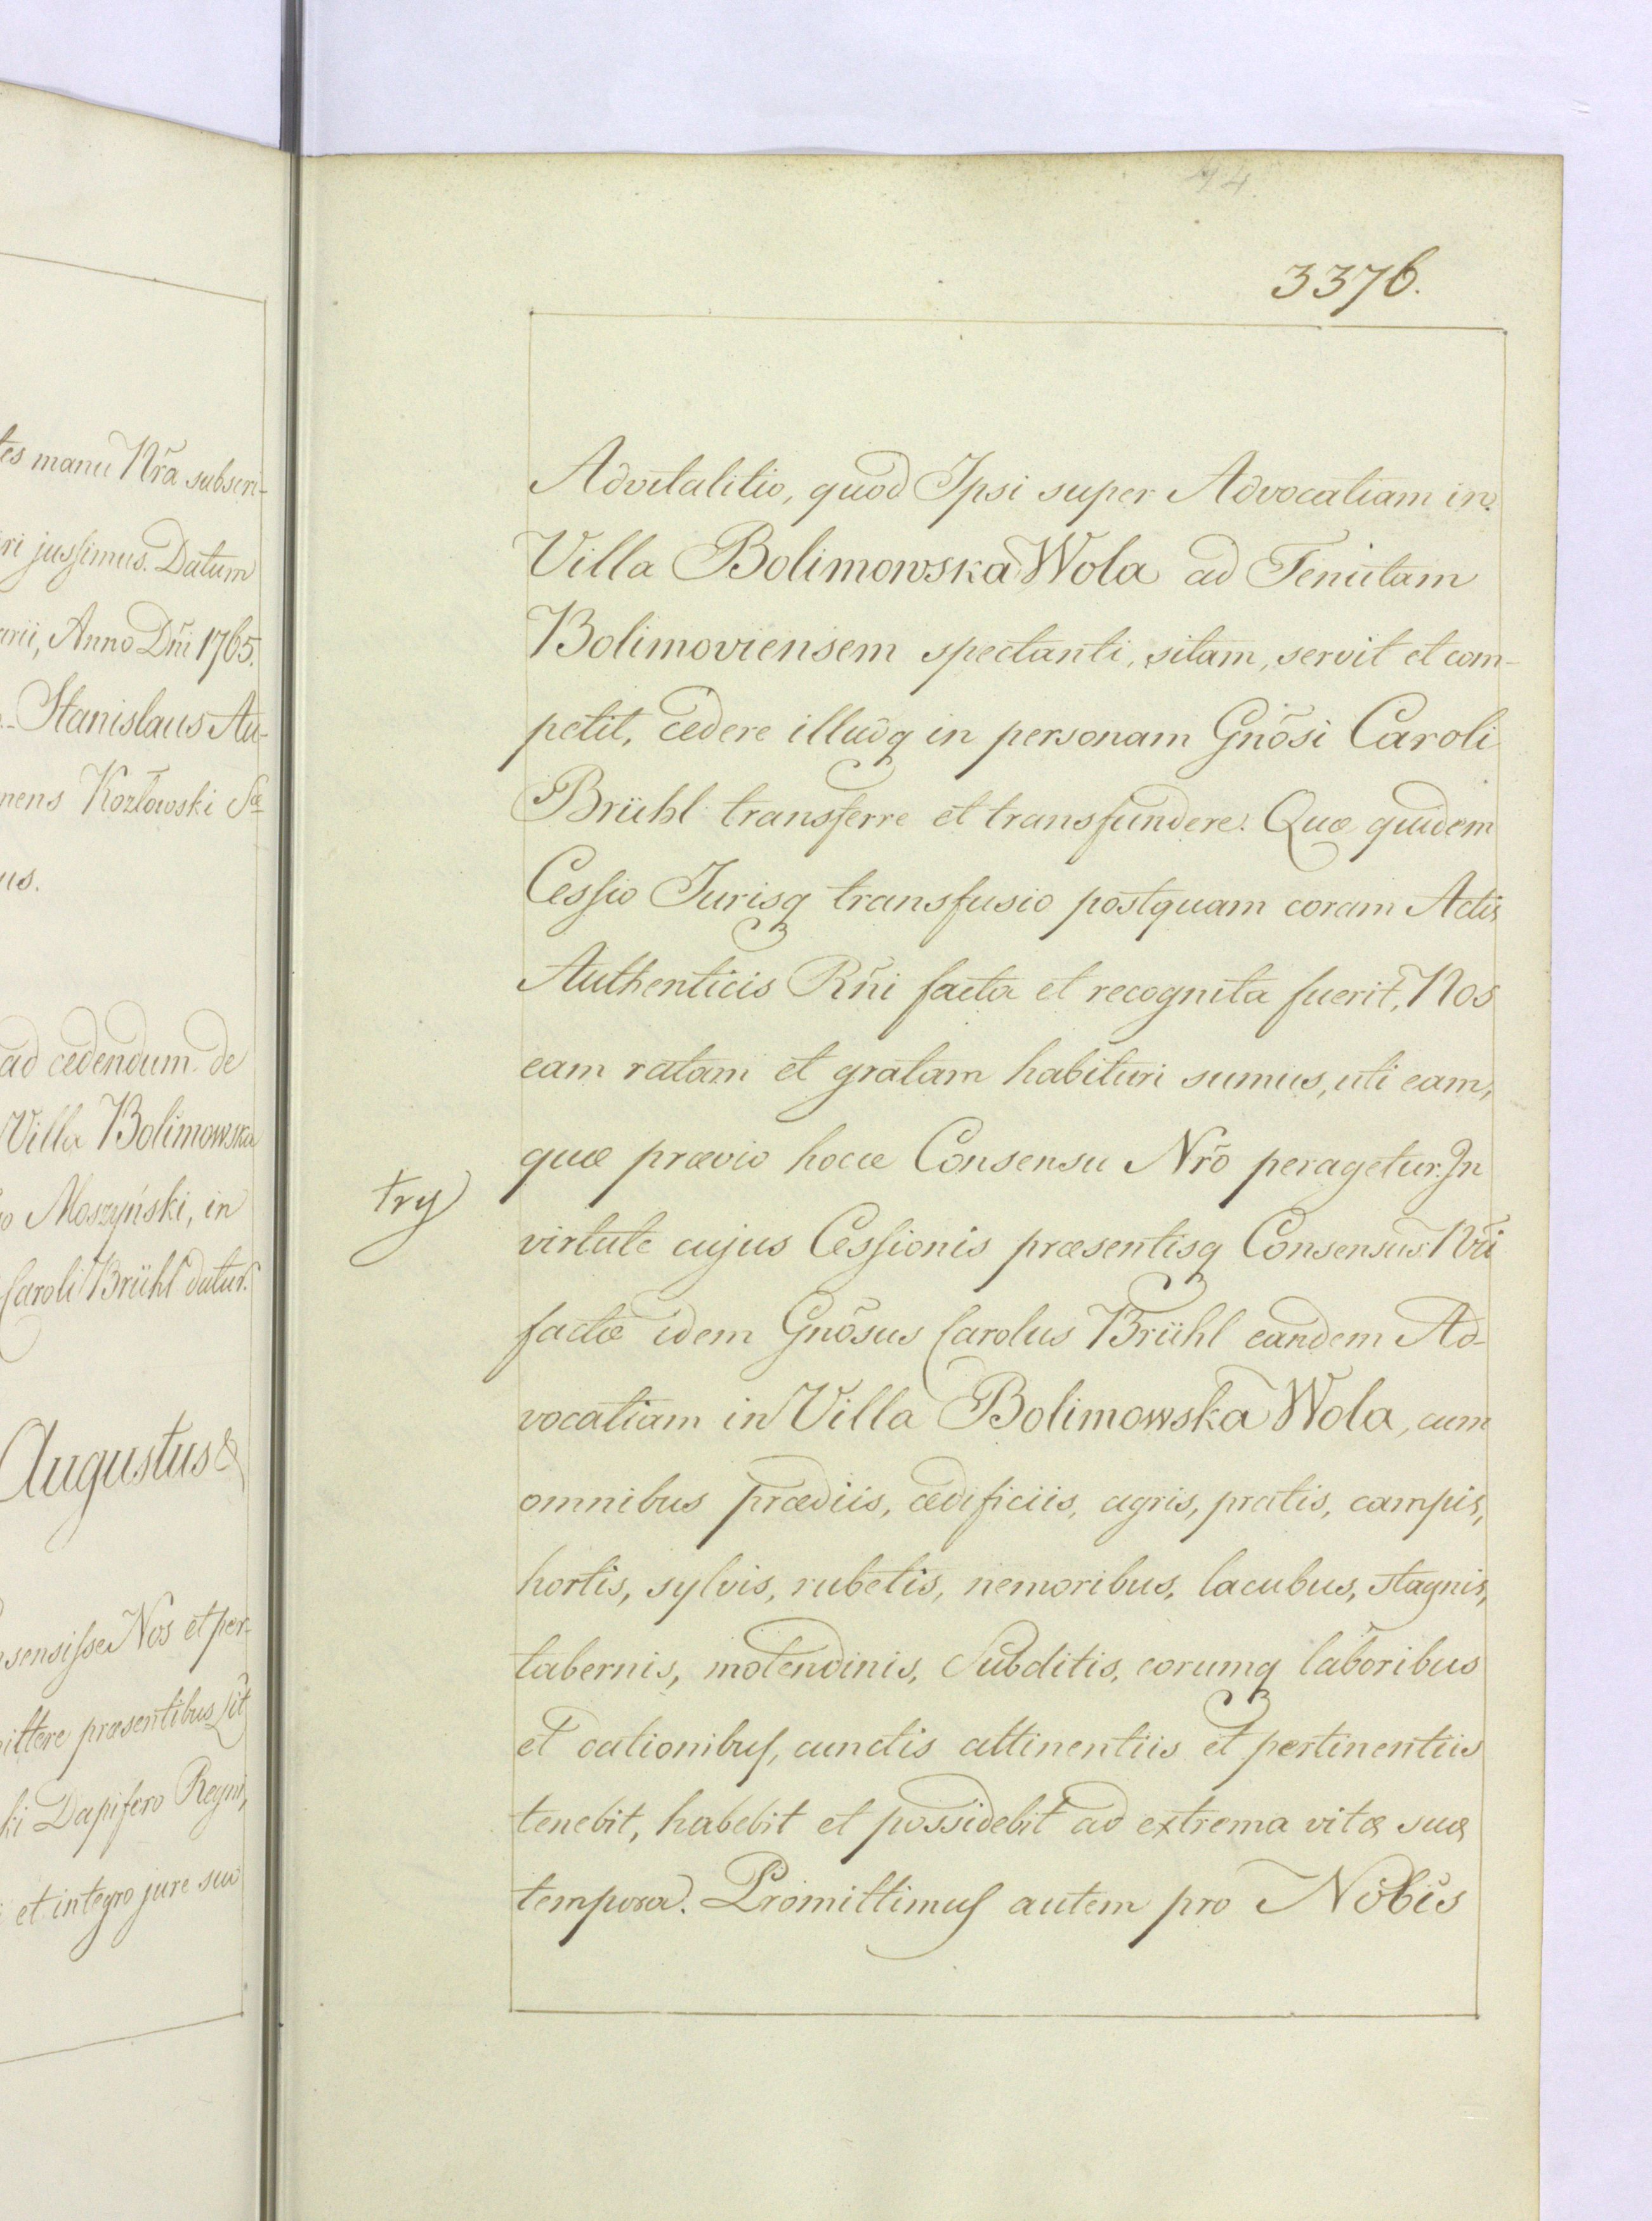 tes manu Nr̃a subscri-
ri jussimus. Datum
arii, Anno Dñi 1765.
Stanislaus Au-
mens Kozłowski Sæ
us.
ad cedendum de
Villa Bolimowska
o Moszyński, in
Caroli Brühl datur.
Augustus &
sensisse Nos et per-
ittere præsentibus Lit
ki Dapifero Regni,
et integro jure suo
94
3376.
Advitalitio, quod Ipsi super Advocatiam in
Villa Bolimowska Wola ad Tenutam
Bolimoviensem spectanti, sitam, servit et com-
petit, cedere illudq in personam Gnõsi Caroli
Brühl transferre et transfundere. Quæ quidem
Cessio Jurisq transfusio postquam coram Actis
Authenticis Rñi facta et recognita fuerit, Nos
eam ratam et gratam habituri sumus, uti eam,
quæ prævio hocce Consensu Nrõ peragetur. In
try
virtute cujus Cessionis præsentisq Consensus Nr̃i
factæ idem Gnõsus Carolus Brühl eandem Ad-
vocatiam in Villa Bolimowska Wola, cum
omnibus prædiis, ædificiis, agris, pratis, campis,
hortis, sylvis, rubetis, nemoribus, lacubus, stagnis,
tabernis, molendinis, Subditis, eorumq laboribus
et dationibus, cunctis attinentiis et pertinentiis
tenebit, habebit et possidebit ad extrema vitæ suæ
tempora. Promittimus autem pro Nobis